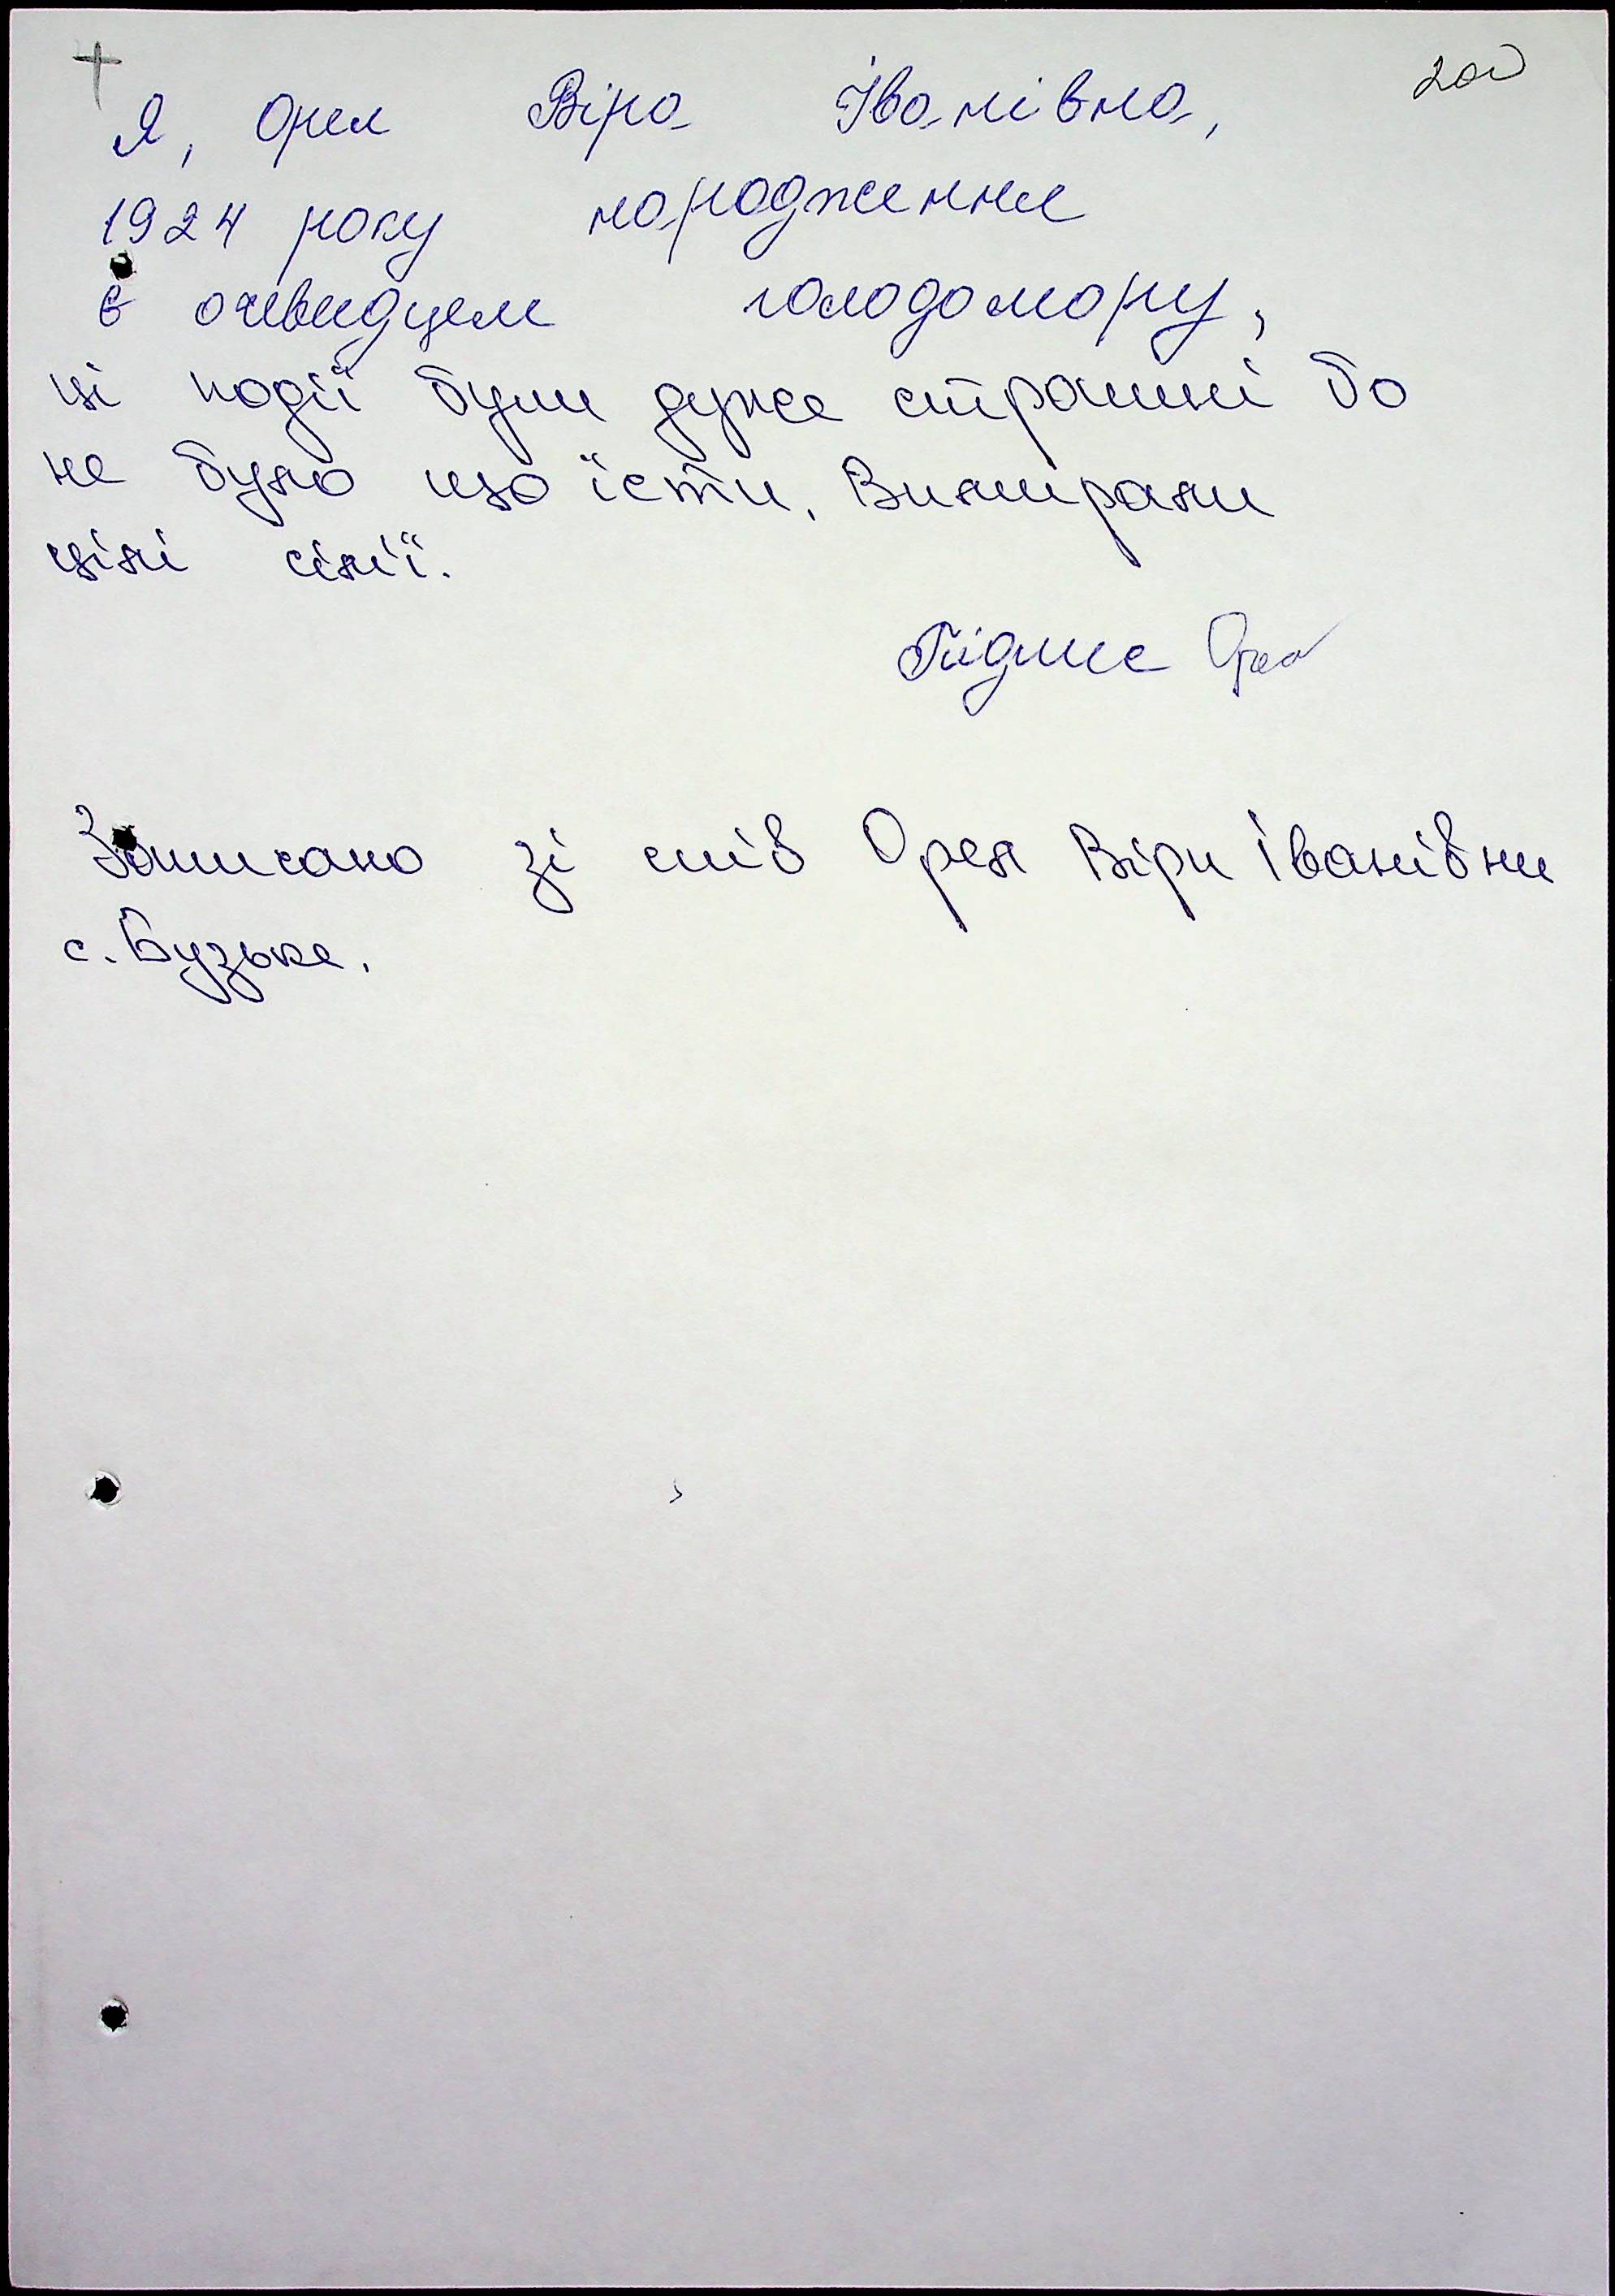 200
Я, Орел Віра Іванівна,
1924 року народження
є очевидцем голодомору,
ці події були дуже страшні бо
не було що їсти. Вимирали
цілі сімї.
Підпис Орел
Записано зі слів Орел Віри Іванівни
с. Бузьке.